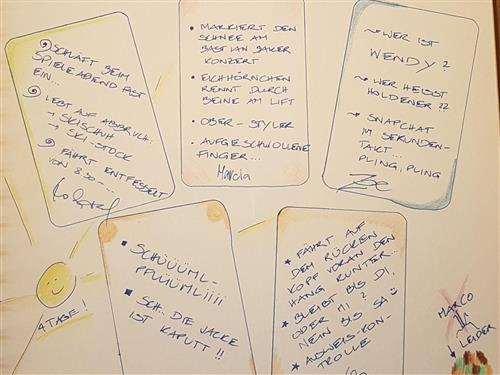 SCHLÄFT BEIM
SPIELEABEND FAST
EIN...
LEBT AUF ABBRUCH.
→ SKISCHUH
→ SKI-STOCK
FÄHRT ENTFESSELT
VON 8:30 - ...
• MARKIERT DEN
SCHNEE AM
BASTIAN BAKER
KONZERT
• EICHHÖRNCHEN
RENNT DURCH
BEINE AM LIFT
• OBER-STYLER
• AUFGESCHWOLLENE
FINGER...
Marcia
~ WER IST
WENDY?
~ WER HEISST
HOLDENER??
~ SNAPCHAT
IM SEKUNDEN-
TAKT...
PLING, PLING
Zoe
4 TAGE!
▪ SCHÜÜÜML-
PFLÜÜMLIIII
▪ SCH... DIE JACKE
IST KAPUTT!!
* FÄHRT AUF
DEM RÜCKEN
KOPF VORAN DEN
HANG RUNTER...
* BLEIBT BIS DI,
ODER MI?
NEIN BIS SA
* AUSWEIS-KON-
TROLLE
MARCO
LEIDER